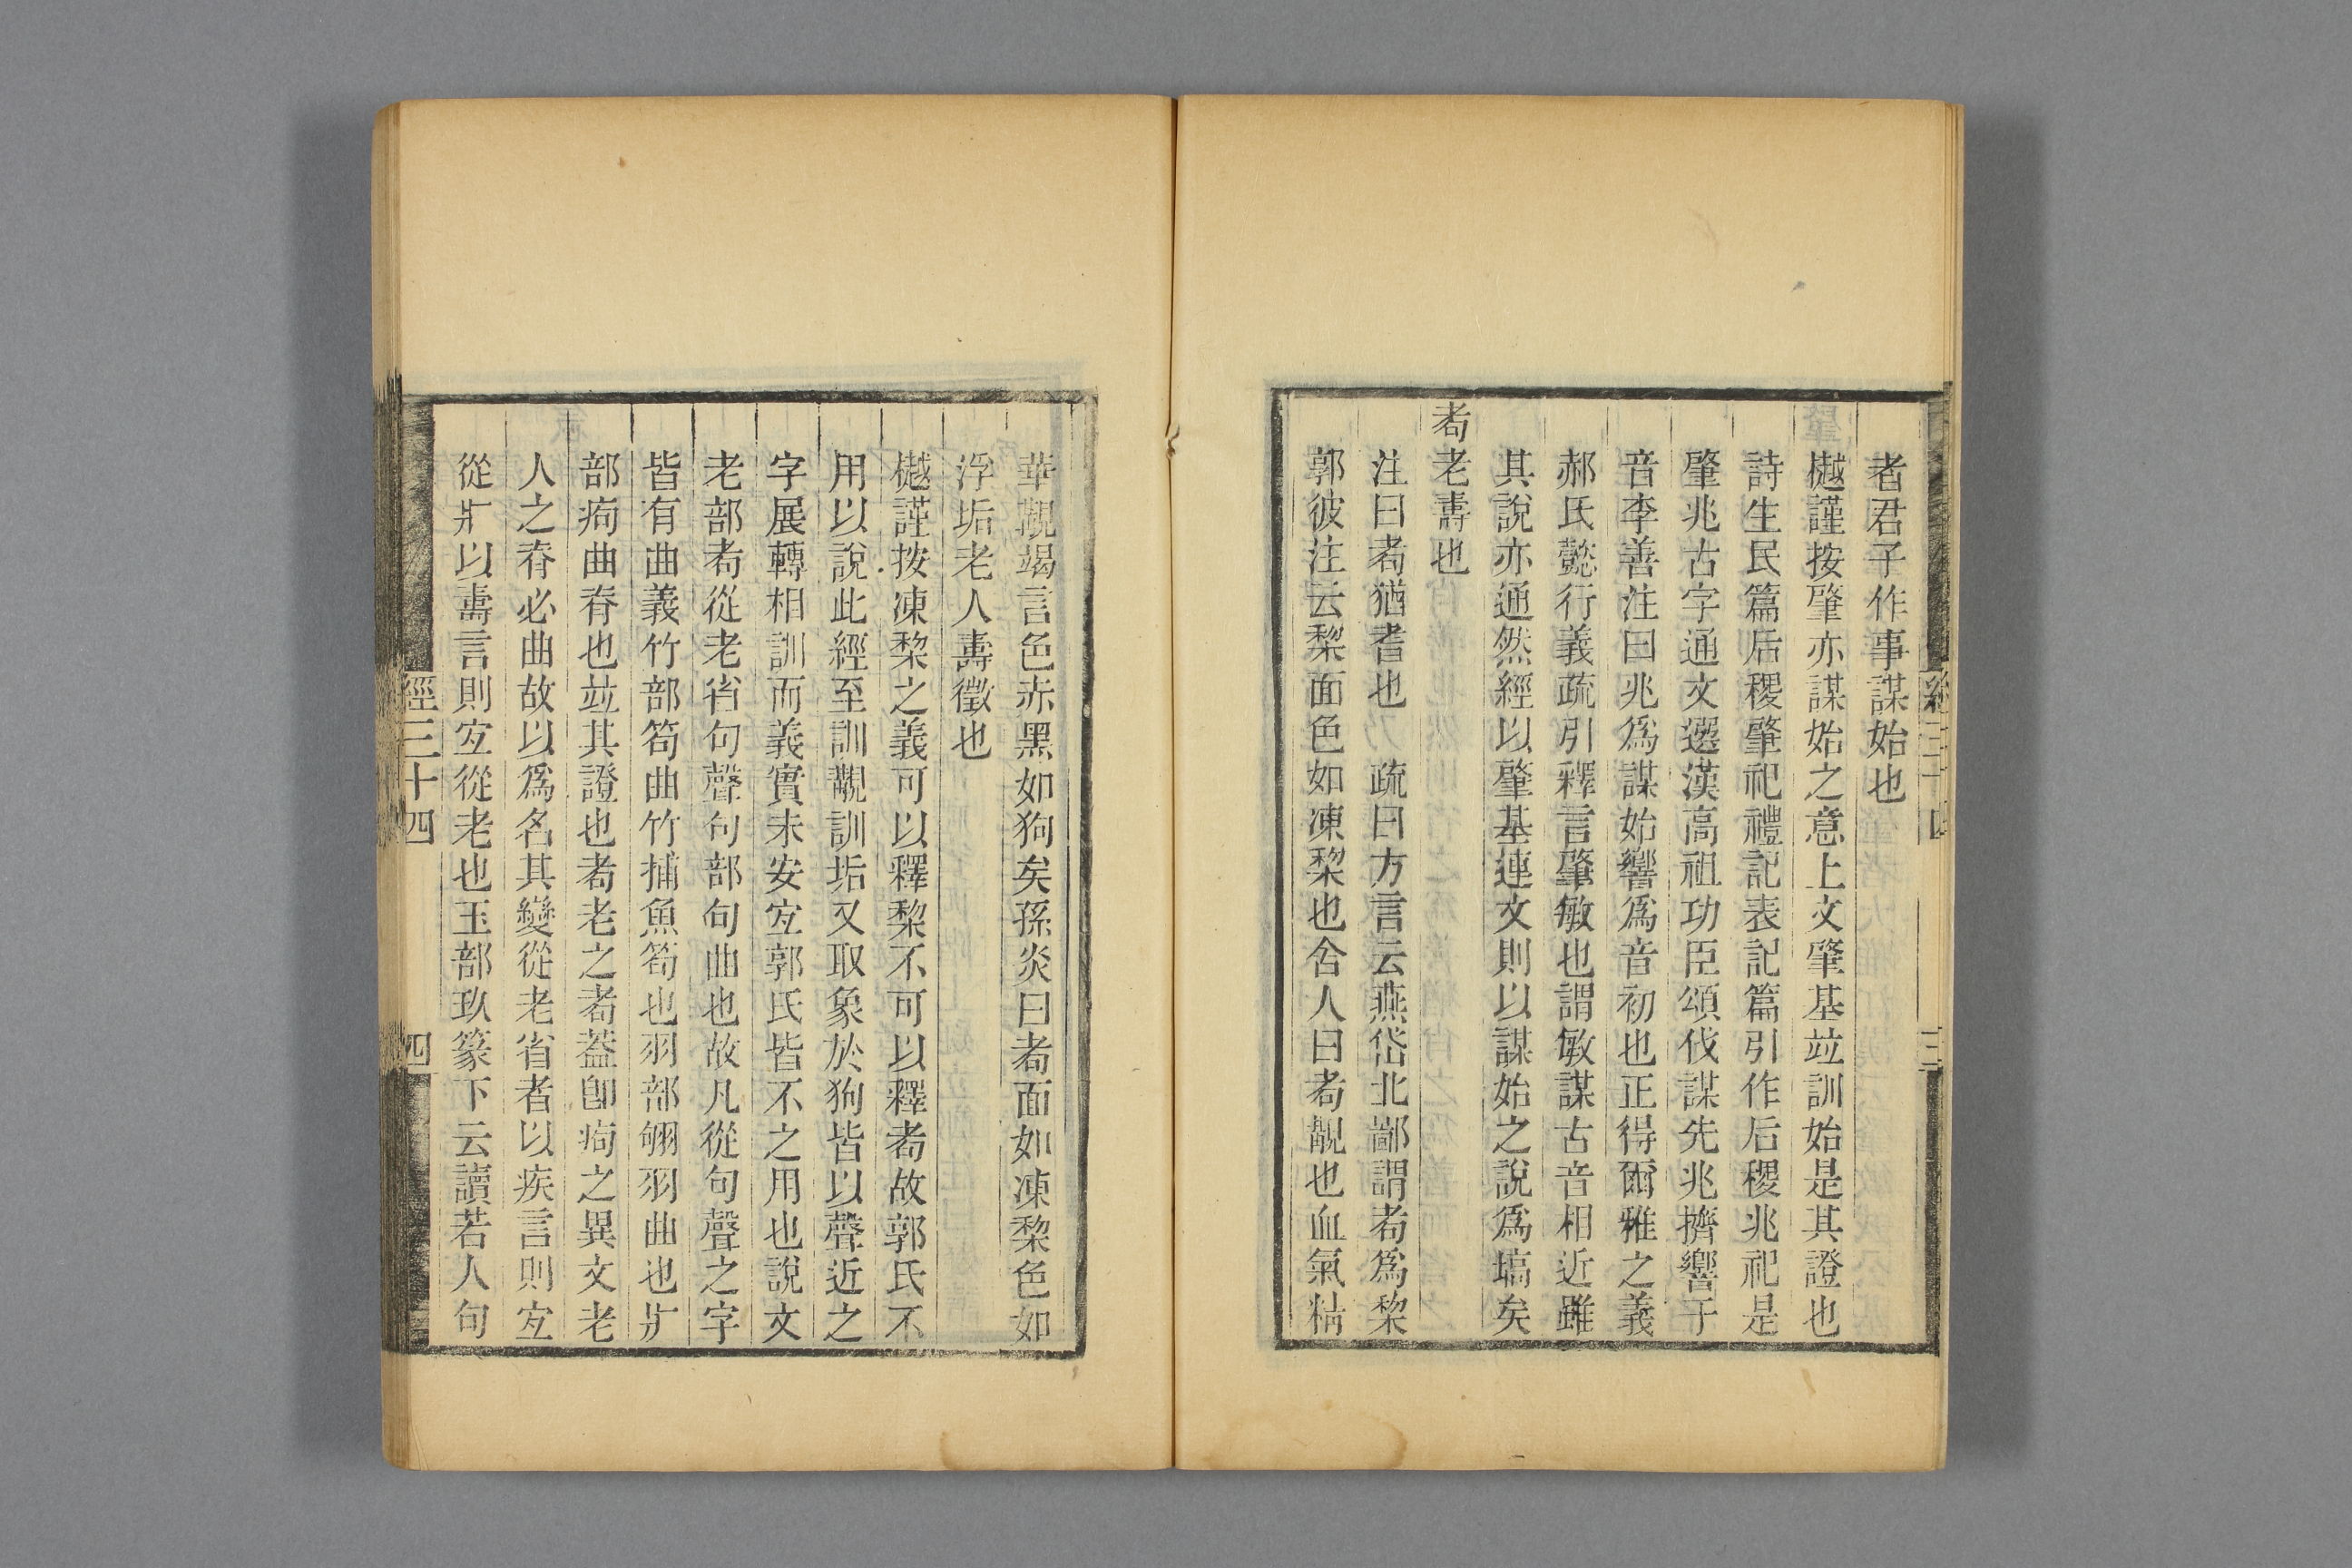 者君子作事謀始也
樾謹按肈亦謀始之意上文肇基竝訓始是其證也
詩生民篇后稷肇祀禮記表記篇引作后稷兆祀是
肇兆古字通文選漢高祖功臣頌伐謀先兆擠響于
音李善注曰兆爲謀始響爲音初也正得爾雅之義
郝氏懿行義疏引釋言肇敏也謂敏謀古音相近雖
其說亦通然經以肇基連文則以謀始之說爲塙矣
耇老壽也
注曰耇猶耆也　疏曰方言云燕岱北鄙謂耇爲棃
郭彼注云棃面色如凍棃也舍人曰耇覯也血氣精
華覯竭言色赤黑如狗矣孫炎曰耇面如凍棃色如
浮垢老人壽徵也
樾謹按凍棃之義可以釋棃不可以釋耇故郭氏不
用以說此經至訓覯訓垢又取象於狗皆以聲近之
字展轉相訓而義實未安宐郭氏皆不之用也說文
老部耇從老省句聲句部句曲也故凡從句聲之字
皆有曲義竹部笱曲竹捕魚笱也羽部翑羽曲也疒
部痀曲脊也竝其證也耇老之耇葢卽痀之異文老
人之脊必曲故以爲名其變從老省者以疾言則宐
從疒以壽言則宐從老也玉部玖篆下云讀若人句
經三十四
四
三